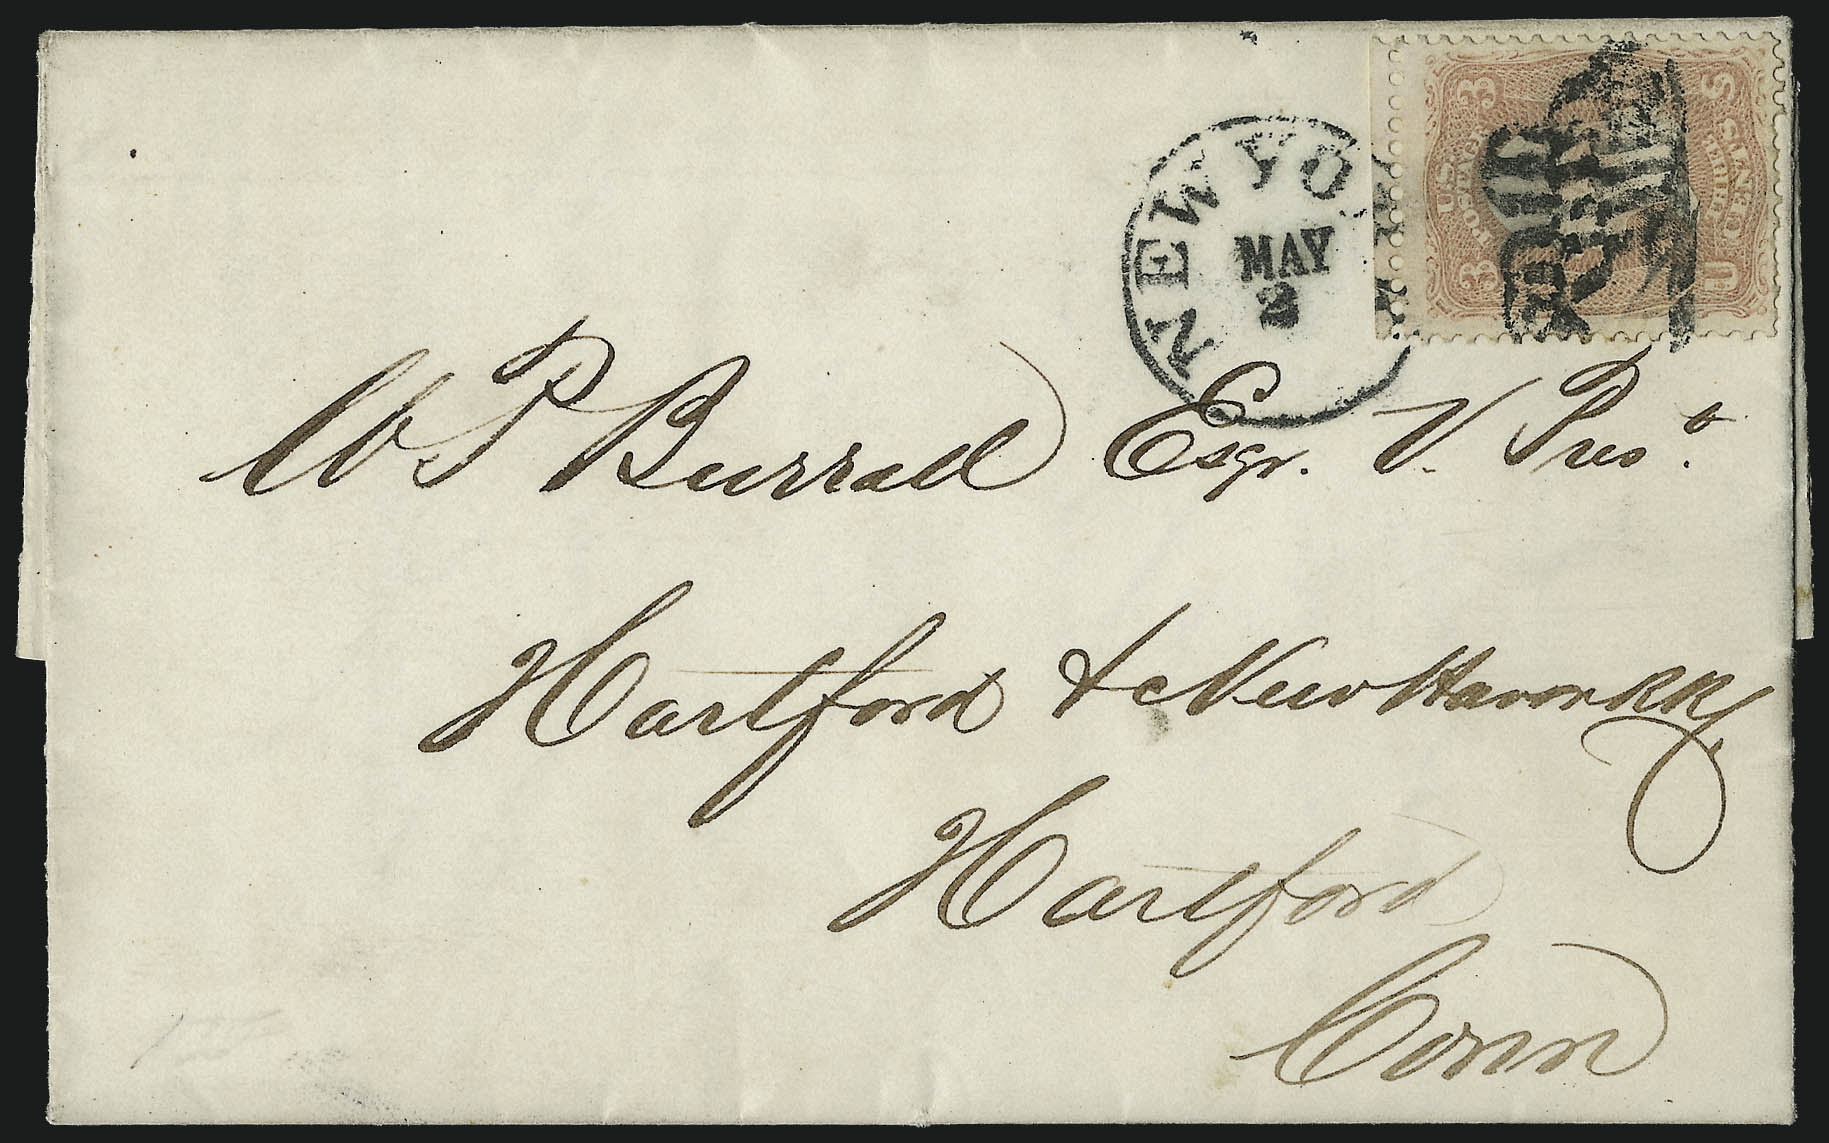 NEW YO
MAY
2
3 U.S. POSTAGE 3
U THREE CENTS S
W P Burrall Esqr. V. Prest.
Hartford & New Haven RR
Hartford
Conn